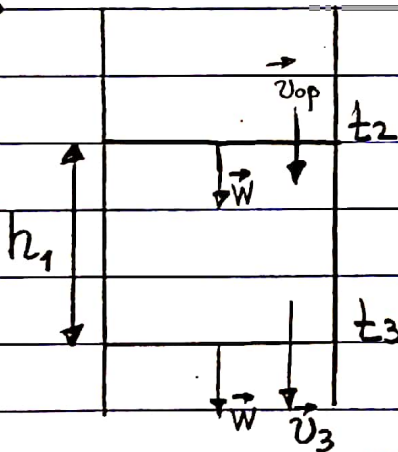 vop
t2
w
h1
t3
w
v3